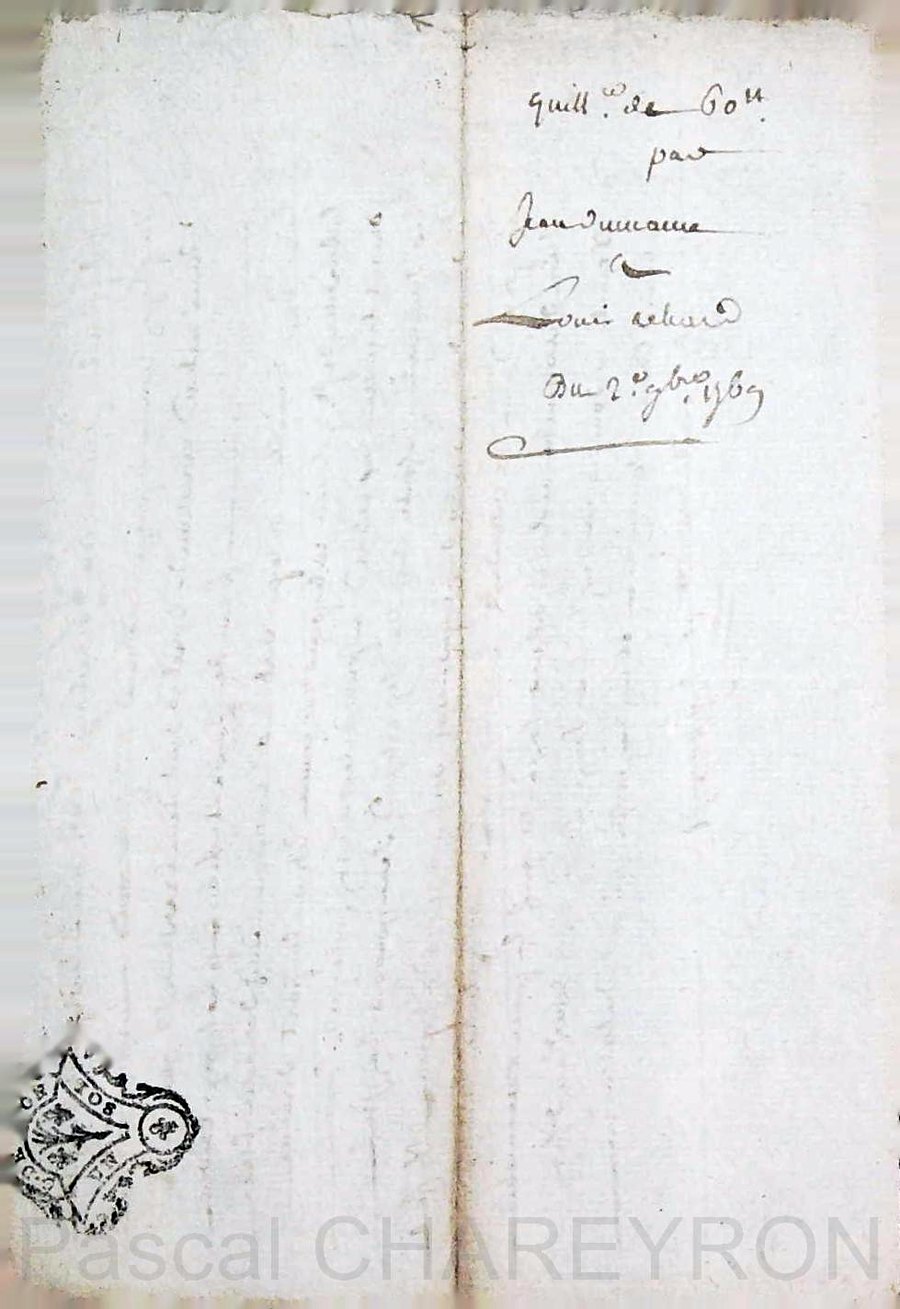 quitt.ce de 60 tt.
par
Jean dumaine
a
Louis achard
Du 2.e 9bre. 1769
Pascal CHAREYRON